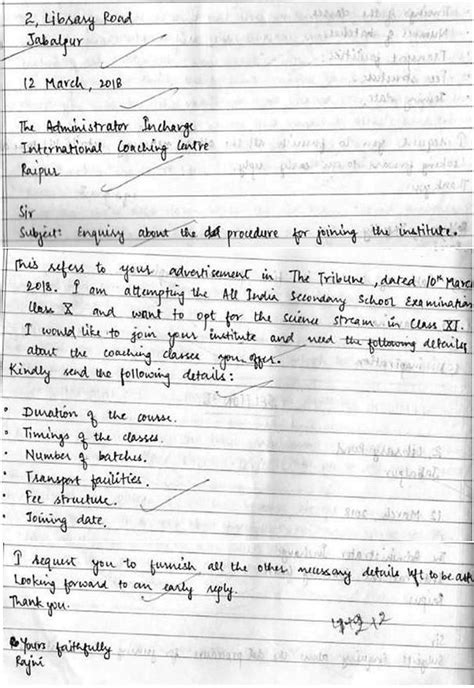 2, Library Road
Jabalpur
12 March, 2018
The Administrator Incharge
International Coaching Centre
Raipur
Sir
Subject: Enquiry about the procedure for joining the institute.
This refers to your advertisement in The Tribune, dated 10th Marc
2018. I am attempting the All India Secondary School Examination
Class X and want to opt for the science stream in Class XI.
I would like to join your institute and need the following details
about the coaching classes you offer.
Kindly send the following details:
• Duration of the course.
• Timings of the classes.
• Number of batches.
• Transport facilities.
• Fee structure.
• Joining date.
I request you to furnish all the other necessary details left to be ask
Looking forward to an early reply.
Thank you.
Yours faithfully
Rajni